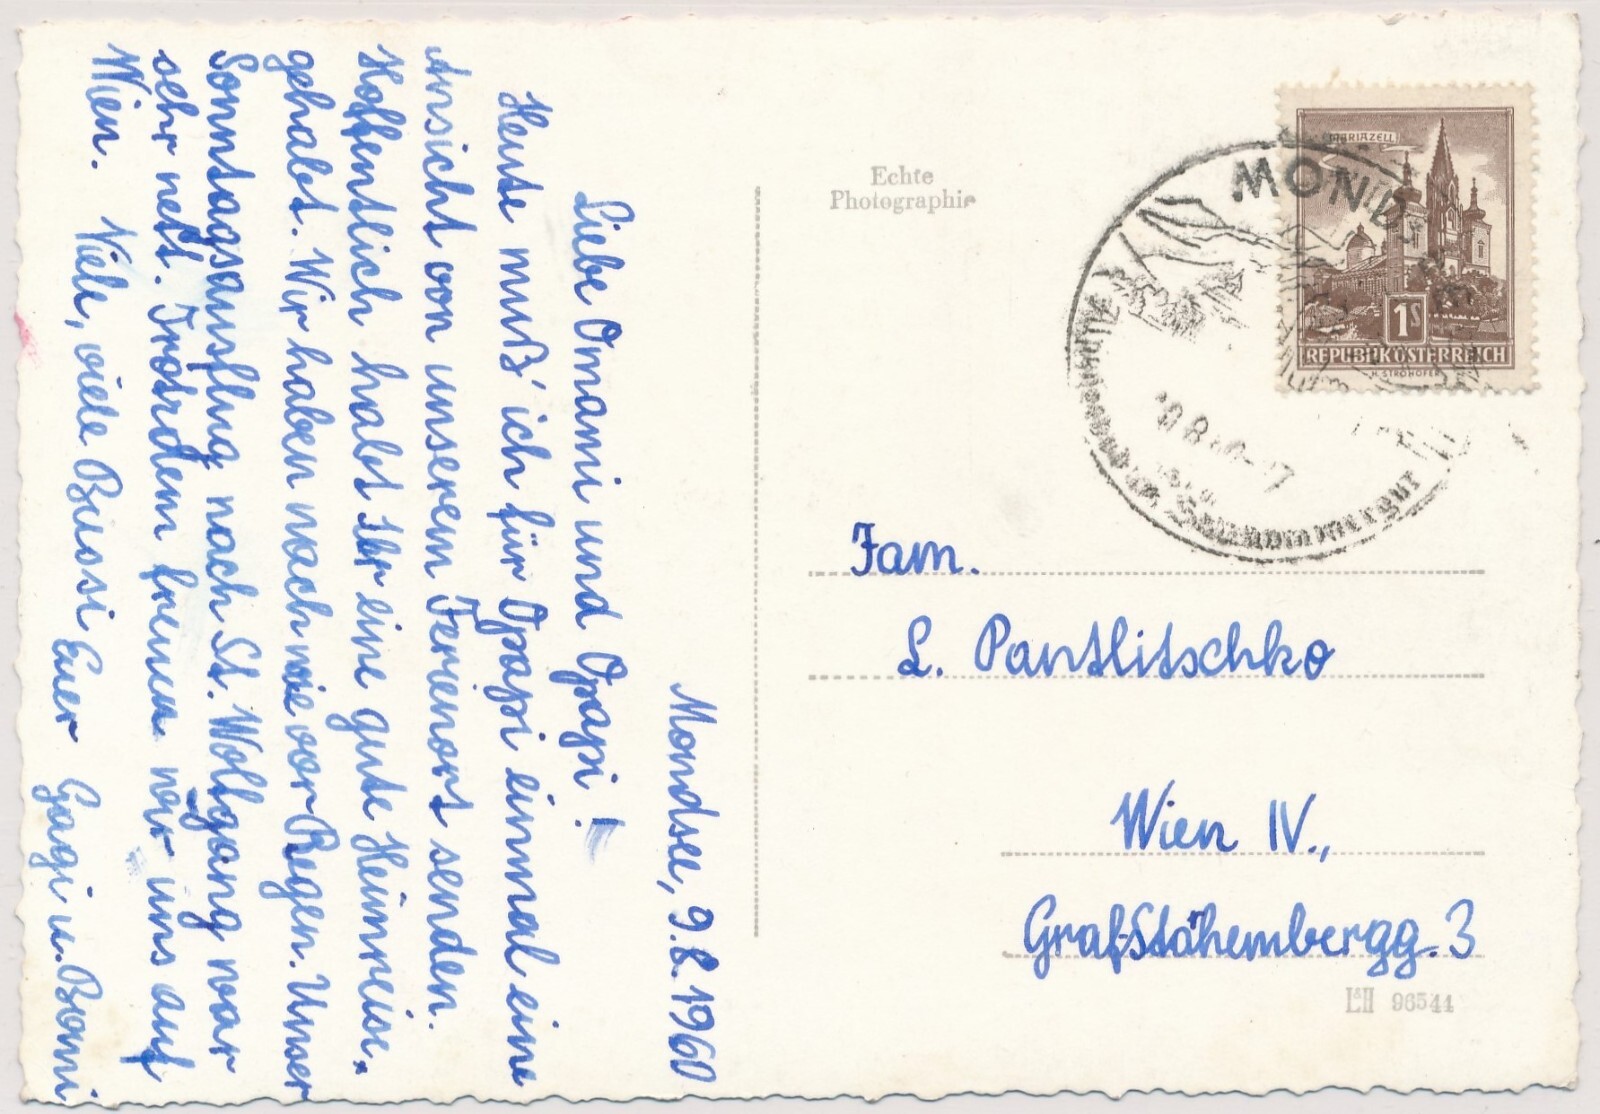 Mondsee, 9.8.1960
Liebe Omami und Opapi!
Heute muß' ich für Opapi einmal eine
Ansicht von unserem Ferienort senden.
Hoffentlich habt Ihr eine gute Heimreise
gehabt. Wir haben nach wie vor Regen. Unser
Sonntagsausflug nach St. Wolfgang war
sehr nett. Trotzdem freuen wir uns auf
Wien. Viele, viele Bussi Euer Gagi u. Bomi
Echte
Photographie
MARIAZELL
1S
REPUBLIK ÖSTERREICH
H. STROHOFER
MONDSEE
Salzkammergut
Fam.
L. Pantlitschko
Wien IV.,
Graf-Stahembergg. 3
L&H 96544